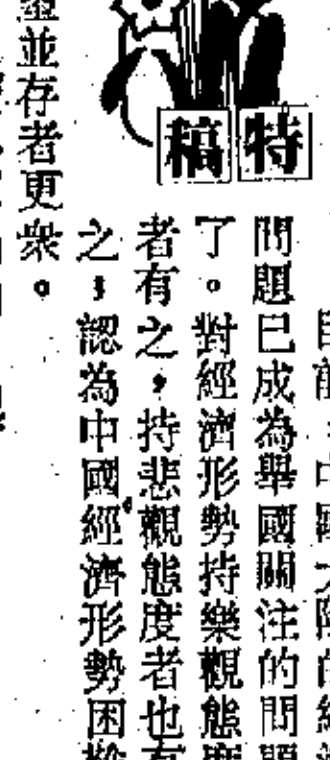 特稿
目前，中國大陸的經濟
問題已成為舉國關注的問題
了。對經濟形勢持樂觀態度
者有之，持悲觀態度者也有
之；認為中國經濟形勢困
並存者更衆。